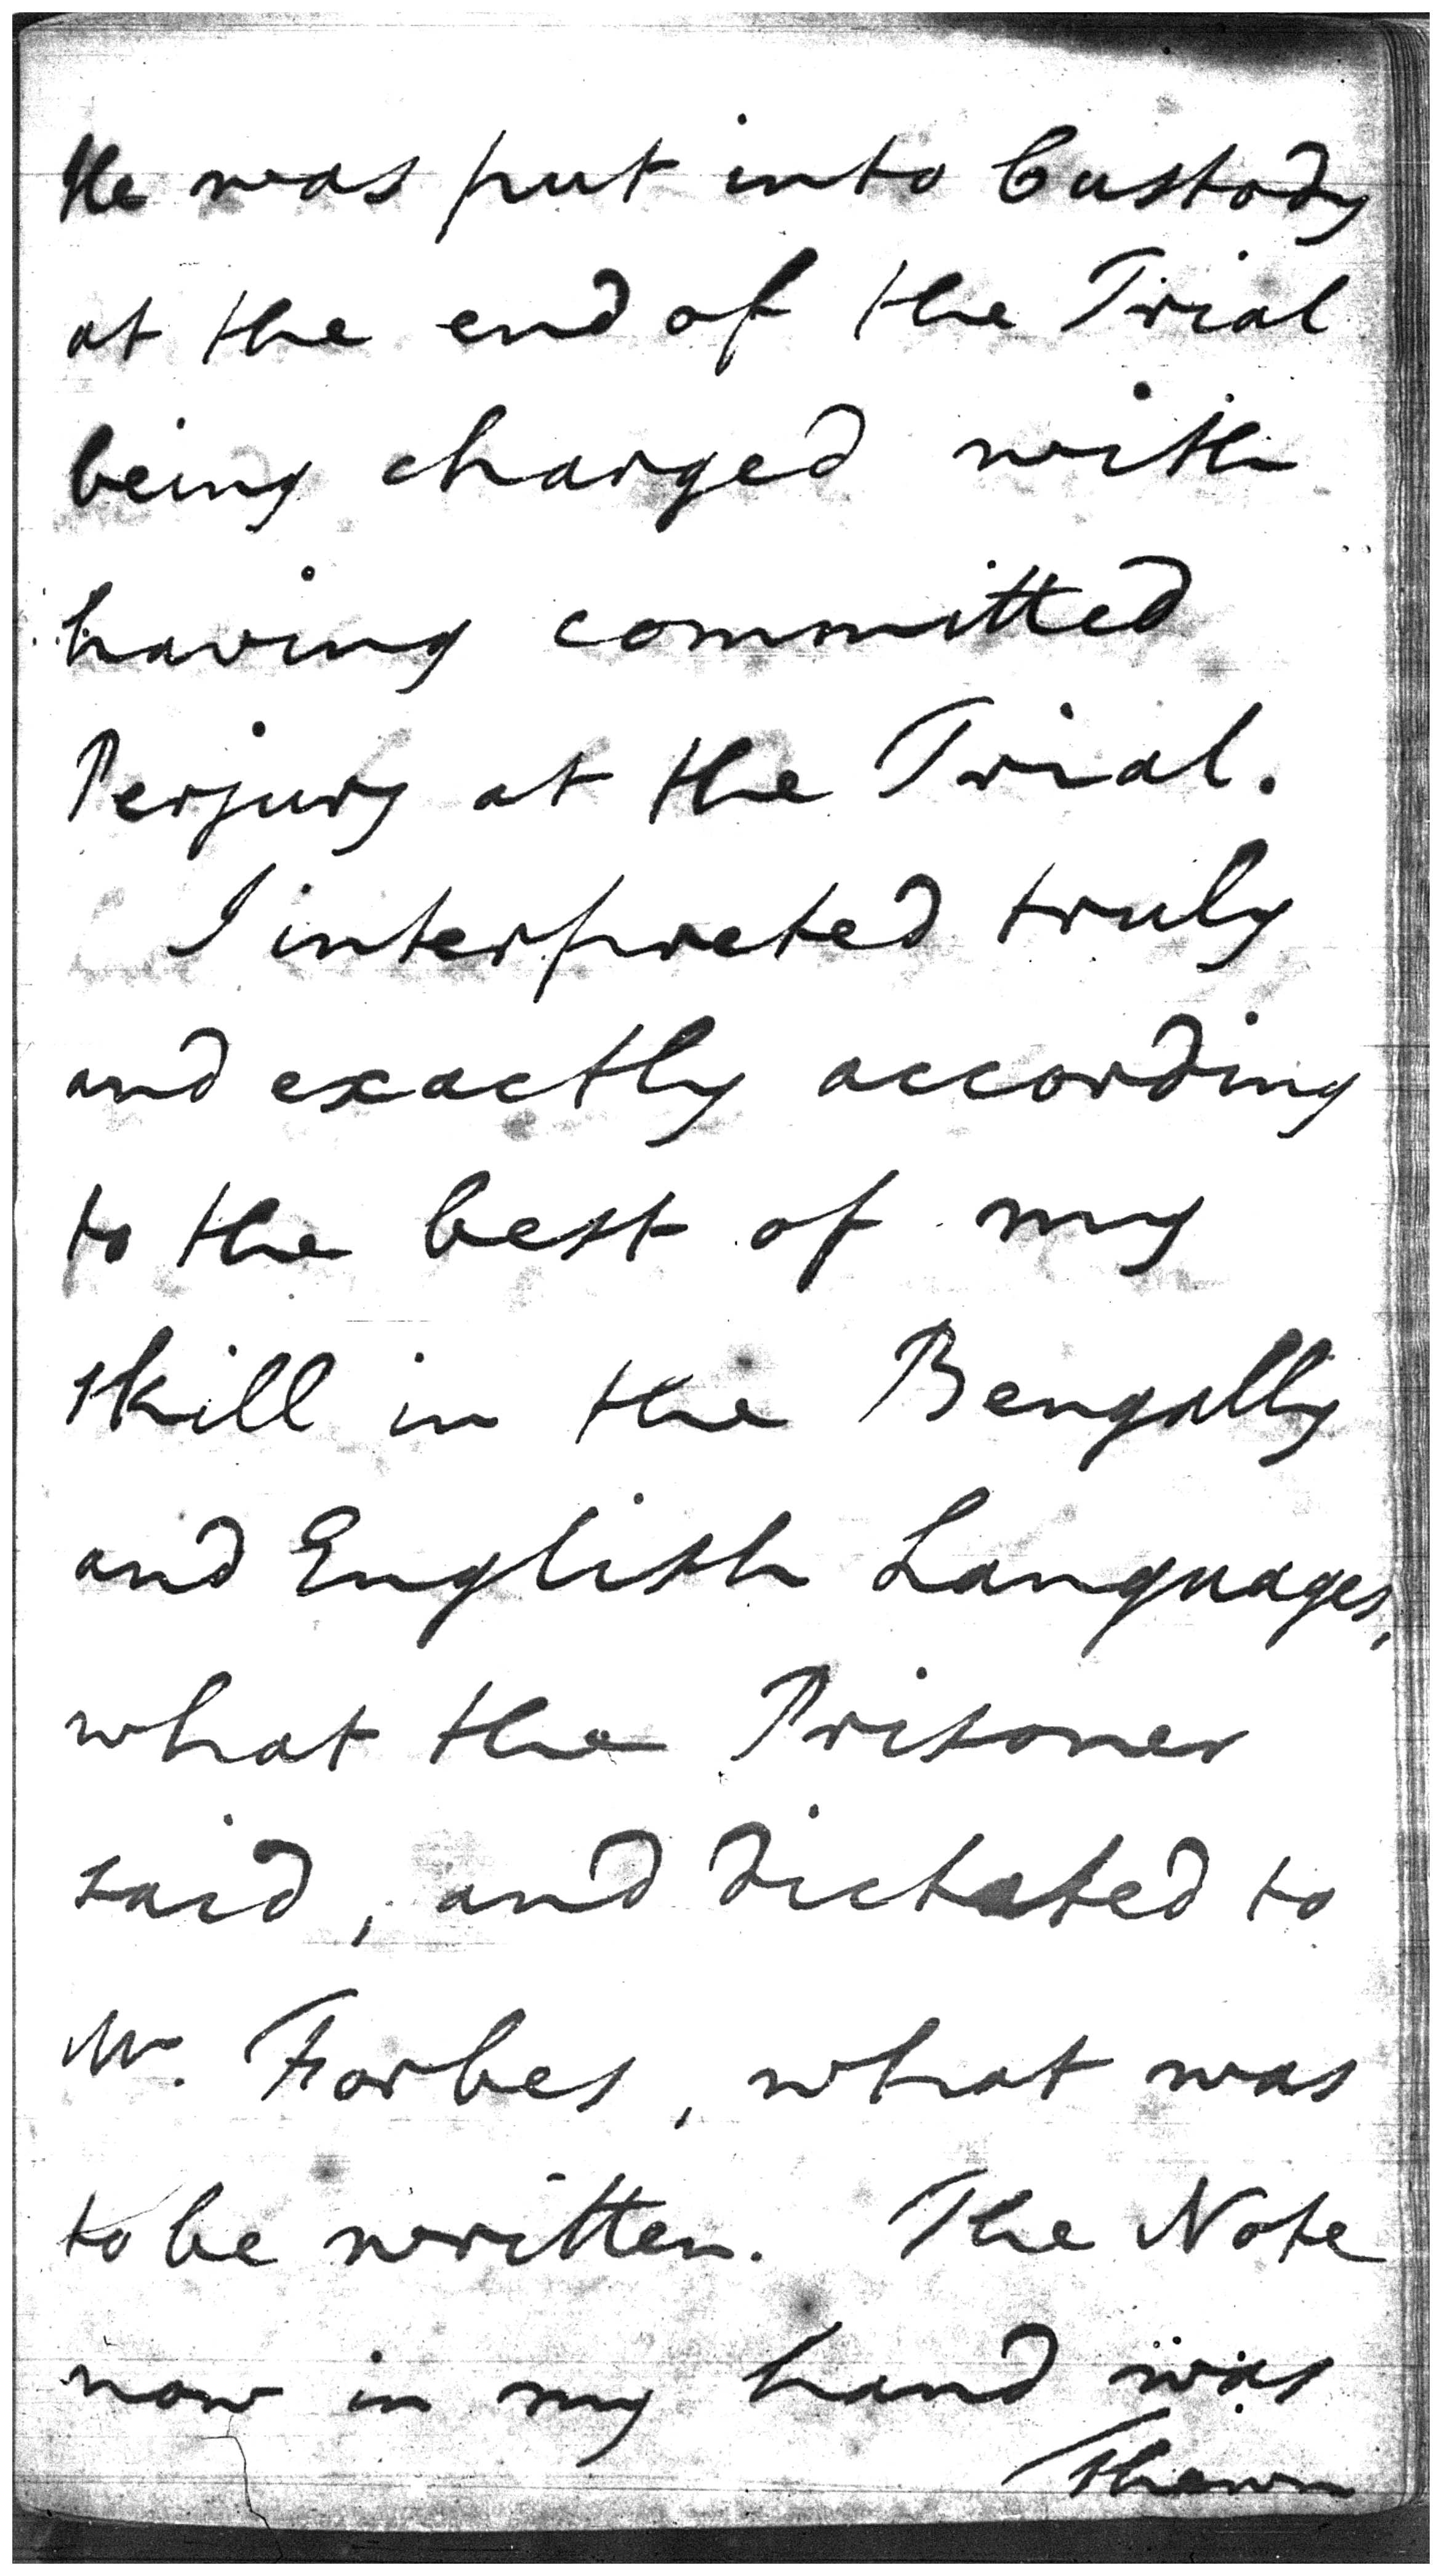 He was put into Custody
at the end of the Trial
being charged with
having committed
Perjury at the Trial.
I interpreted truly
and exactly according
to the best of my
skill in the Bengally
and English Languages,
what the Prisoner
said, and dictated to
Mr. Forbes, what was
to be written. The Note
now in my hand was
shewn